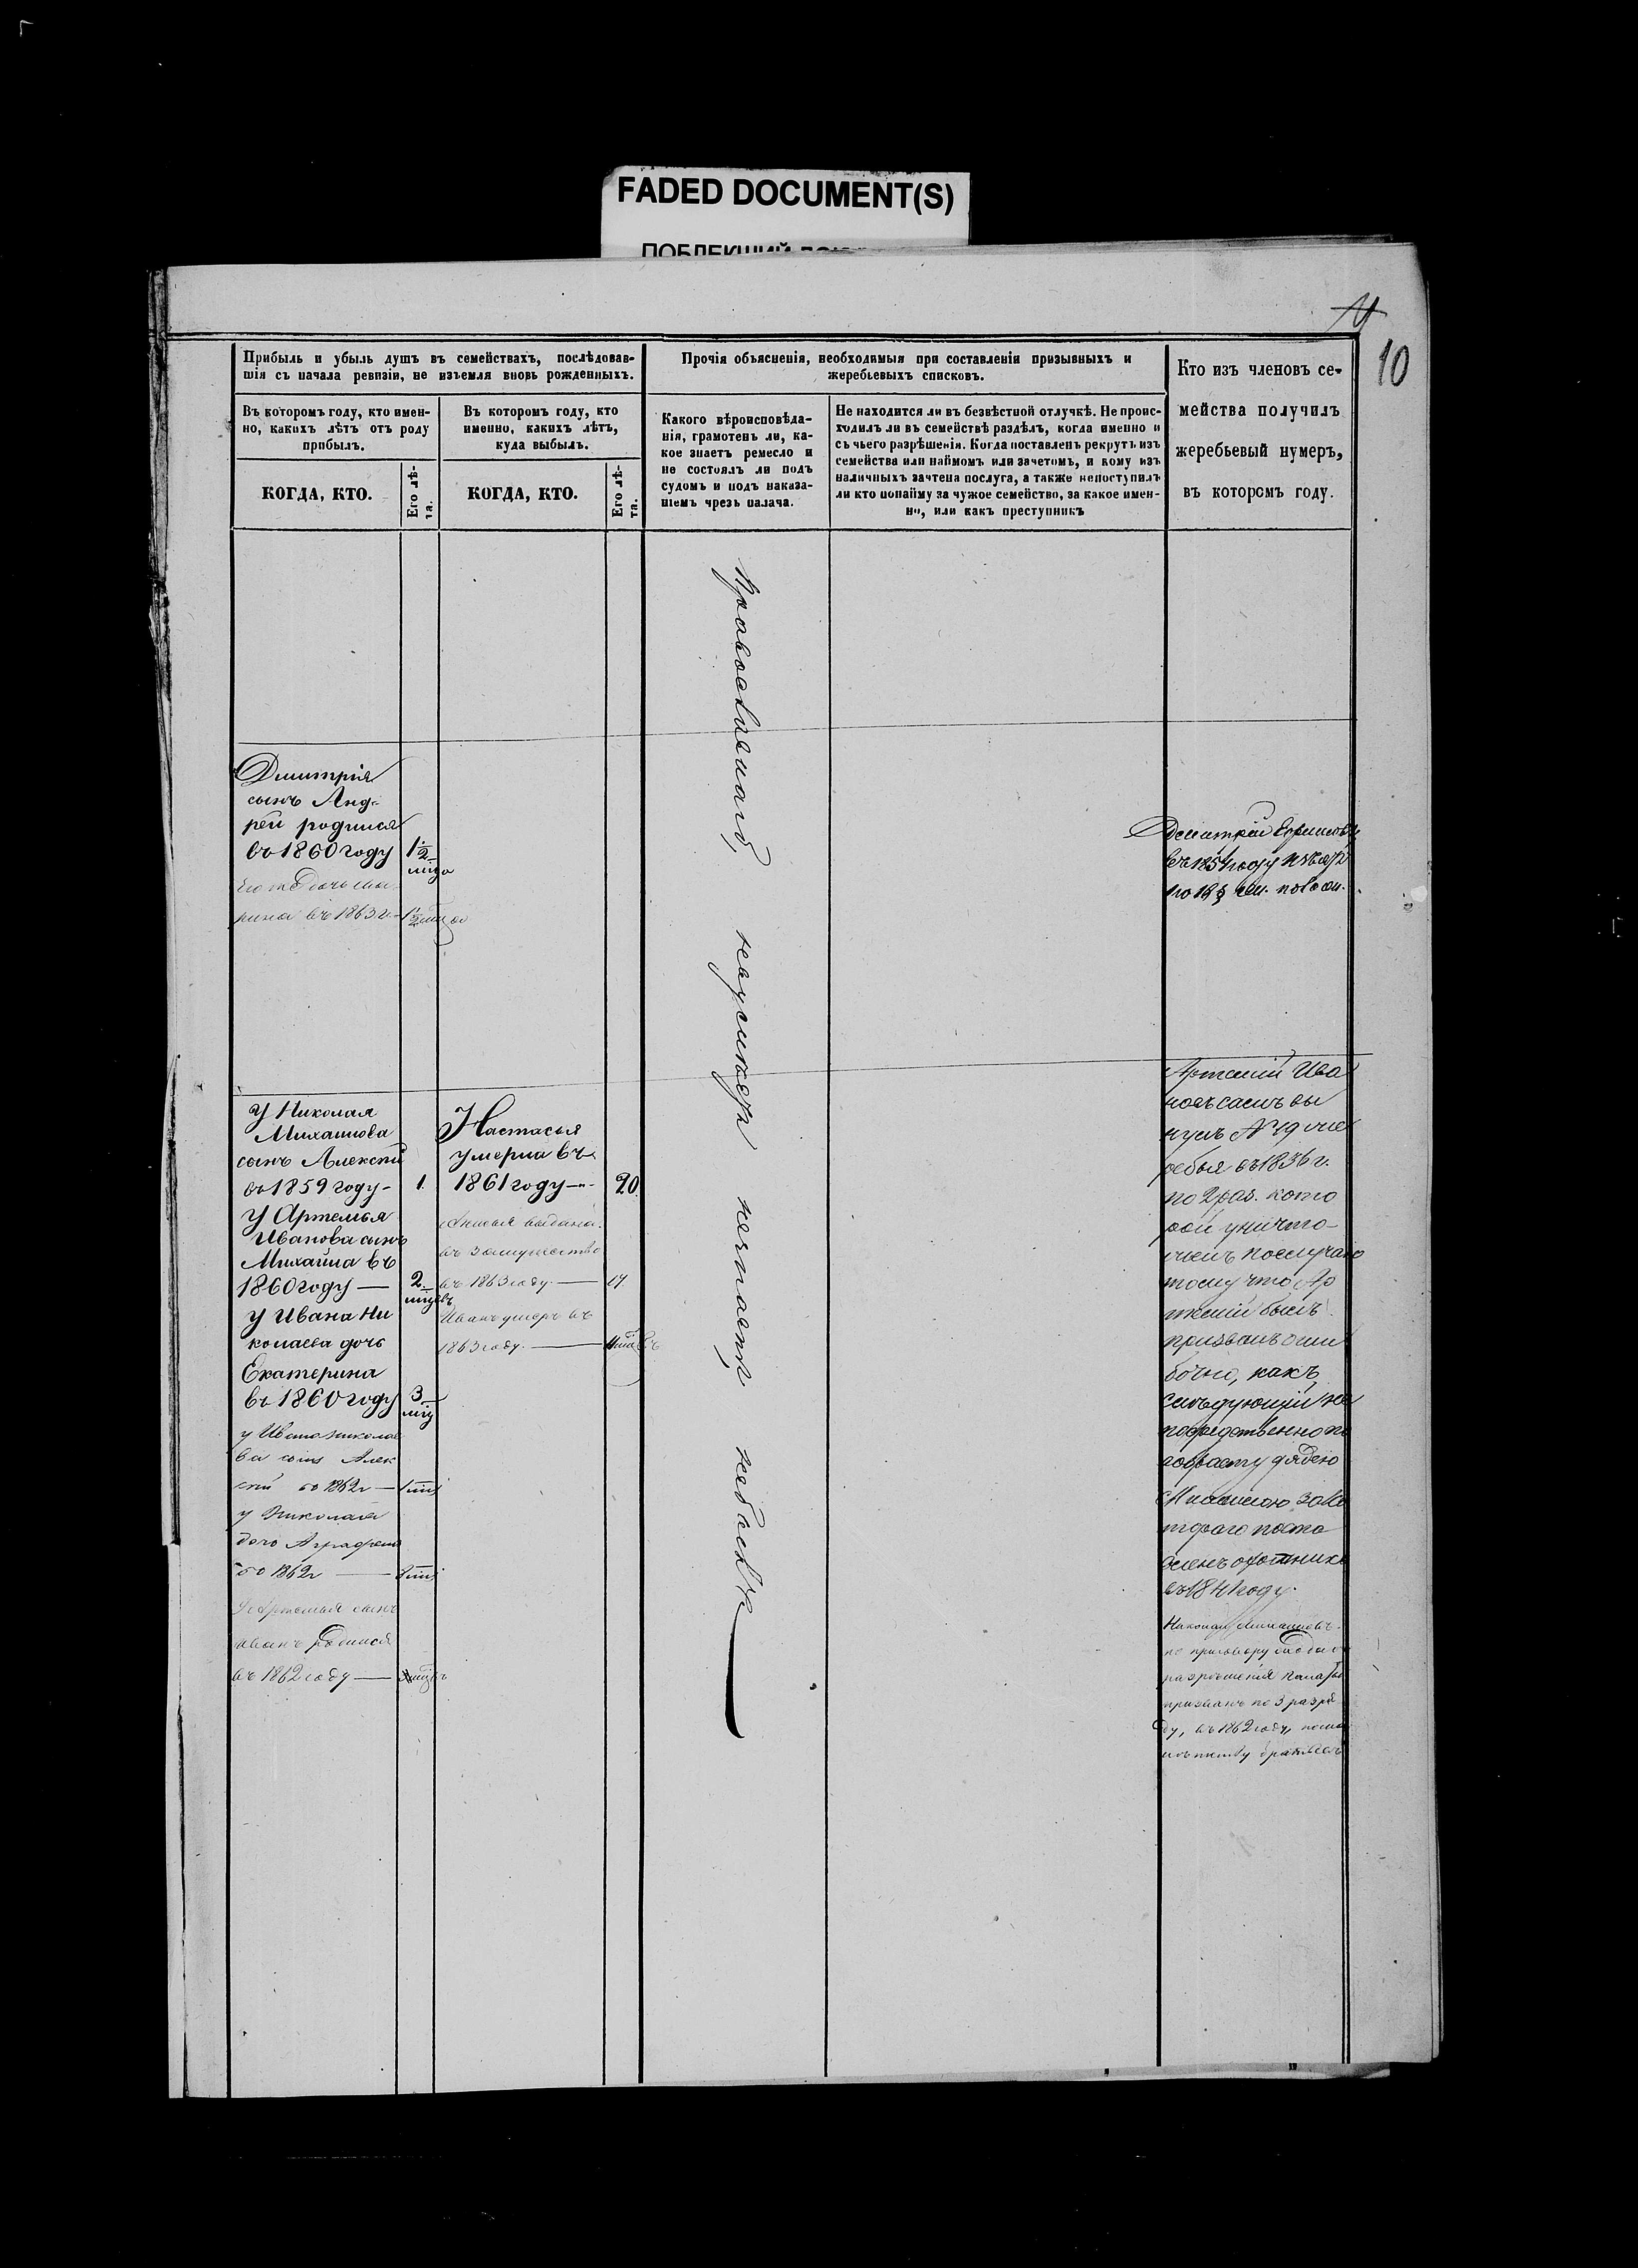 FADED DOCUMENT(S)
10
Прибыль и убыль душъ въ семействахъ, послѣдовав-
шія съ начала ревизіи, не изъемля вновь рожденныхъ.
Прочія объясненія, необходимыя при составленіи призывныхъ и
жеребьевыхъ списковъ.
Кто изъ членовъ се-
мейства получилъ
жеребьевый нумеръ,
въ которомъ году.
Въ которомъ году, кто имен-
но, какихъ лѣтъ отъ роду
прибылъ.
Въ которомъ году, кто
именно, какихъ лѣтъ,
куда выбылъ.
Какого вѣроисповѣда-
нія, грамотенъ ли, ка-
кое знаетъ ремесло и
не состоялъ ли подъ
судомъ и подъ наказа-
ніемъ чрезъ палача.
Не находится ли въ безвѣстной отлучкѣ. Не проис-
ходилъ ли въ семействѣ раздѣлъ, когда именно и
съ чьего разрѣшенія. Когда поставленъ рекрутъ изъ
семейства или наймомъ или зачетомъ, и кому изъ
наличныхъ зачтена послуга, а также непоступилъ
ли кто понайму за чужое семейство, за какое имен-
но, или какъ преступникъ
КОГДА, КТО.
Его лѣ-
та.
КОГДА, КТО.
Его лѣ-
та.
Дмитрія
сынъ Анд-
рей родился
въ 1860 году
1/2
его же дочь
рина въ 1863 г.
Дмитрій Ефимовъ
въ 1854 году
У Николая
Михайлова
сынъ Алексѣй
въ 1859 году - 1.
У Артемья
Иванова сынъ
Михайла въ
1860 году — 2
мцевъ
У Ивана Ни
колаева дочь
Екатерина
въ 1860 году 3
мцъ
у Ивана Никола
ва сынъ Алек
сѣй въ 1862 г —
у Николая
дочь Аграфена
въ 1862 г —
У Артемья сынъ
Иванъ родился
въ 1862 году —
Настасья
умерла въ
1861 году — 20.
выдана
въ замужество
въ 1863 году. —
Иванъ умеръ въ
1863 году. —
Артемій Ива
новъ самъ вы
нулъ № 49 же
ребья въ 1836 г.
по 2 раз. кото
рой уничто-
женъ послучаю
тому что Ар
темій былъ
призванъ оши
бочно, какъ
слѣдующій не
посредственно по
возрасту дядею
за ко
тораго поста
вленъ охотникъ
въ 1841 году.
Николай Михайловъ
по приговору
разрѣшенія палаты
призванъ по 3 разря
ду, въ 1862 году,